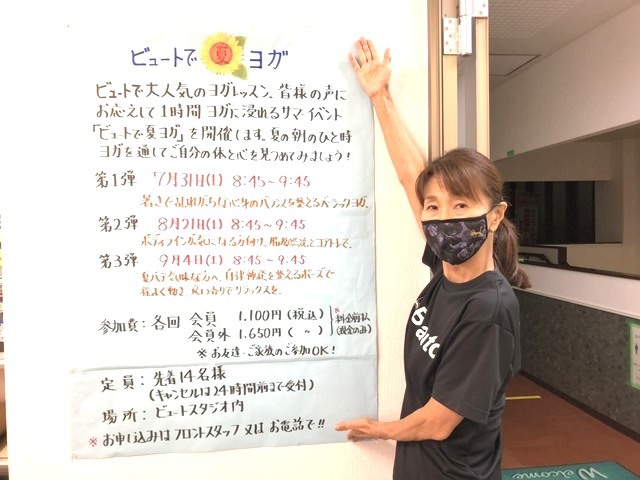 ビュートで 夏 ヨガ
ビュートで大人気のヨガレッスン、皆様の声に
お応えして1時間ヨガに浸れるサマーイベント
「ビュートで夏ヨガ」を開催します。夏の朝のひと時
ヨガを通してご自分の体と心を見つめてみましょう!
第1弾 7月31日(土) 8:45~9:45
暑さで乱れがちな心身のバランスを整えるベーシックヨガ。
第2弾 8月21日(土) 8:45~9:45
ボディラインが気になる方向け、脂肪燃焼とコアトレで。
第3弾 9月4日(土) 8:45~9:45
夏バテ気味な方へ、自律神経を整えるポーズで
程よく動き、良い香りでリラックスを。
参加費:各回 会員 1,100円(税込)
会員外 1,650円( 〃 )
※料金前払
(現金のみ)
※お友達・ご家族のご参加OK!
定員:先着14名様
(キャンセルは24時間前まで受付)
場所:ビュートスタジオ内
※お申し込みはフロントスタッフ又はお電話で!!
Welcome